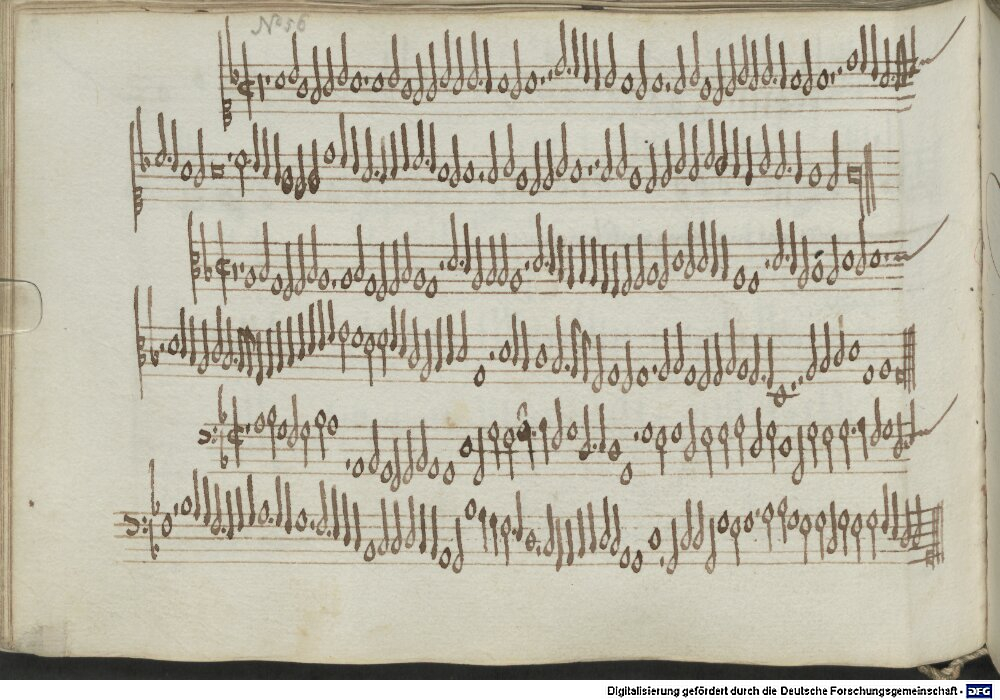 No 56
Digitalisierung gefördert durch die Deutsche Forschungsgemeinschaft - DFG